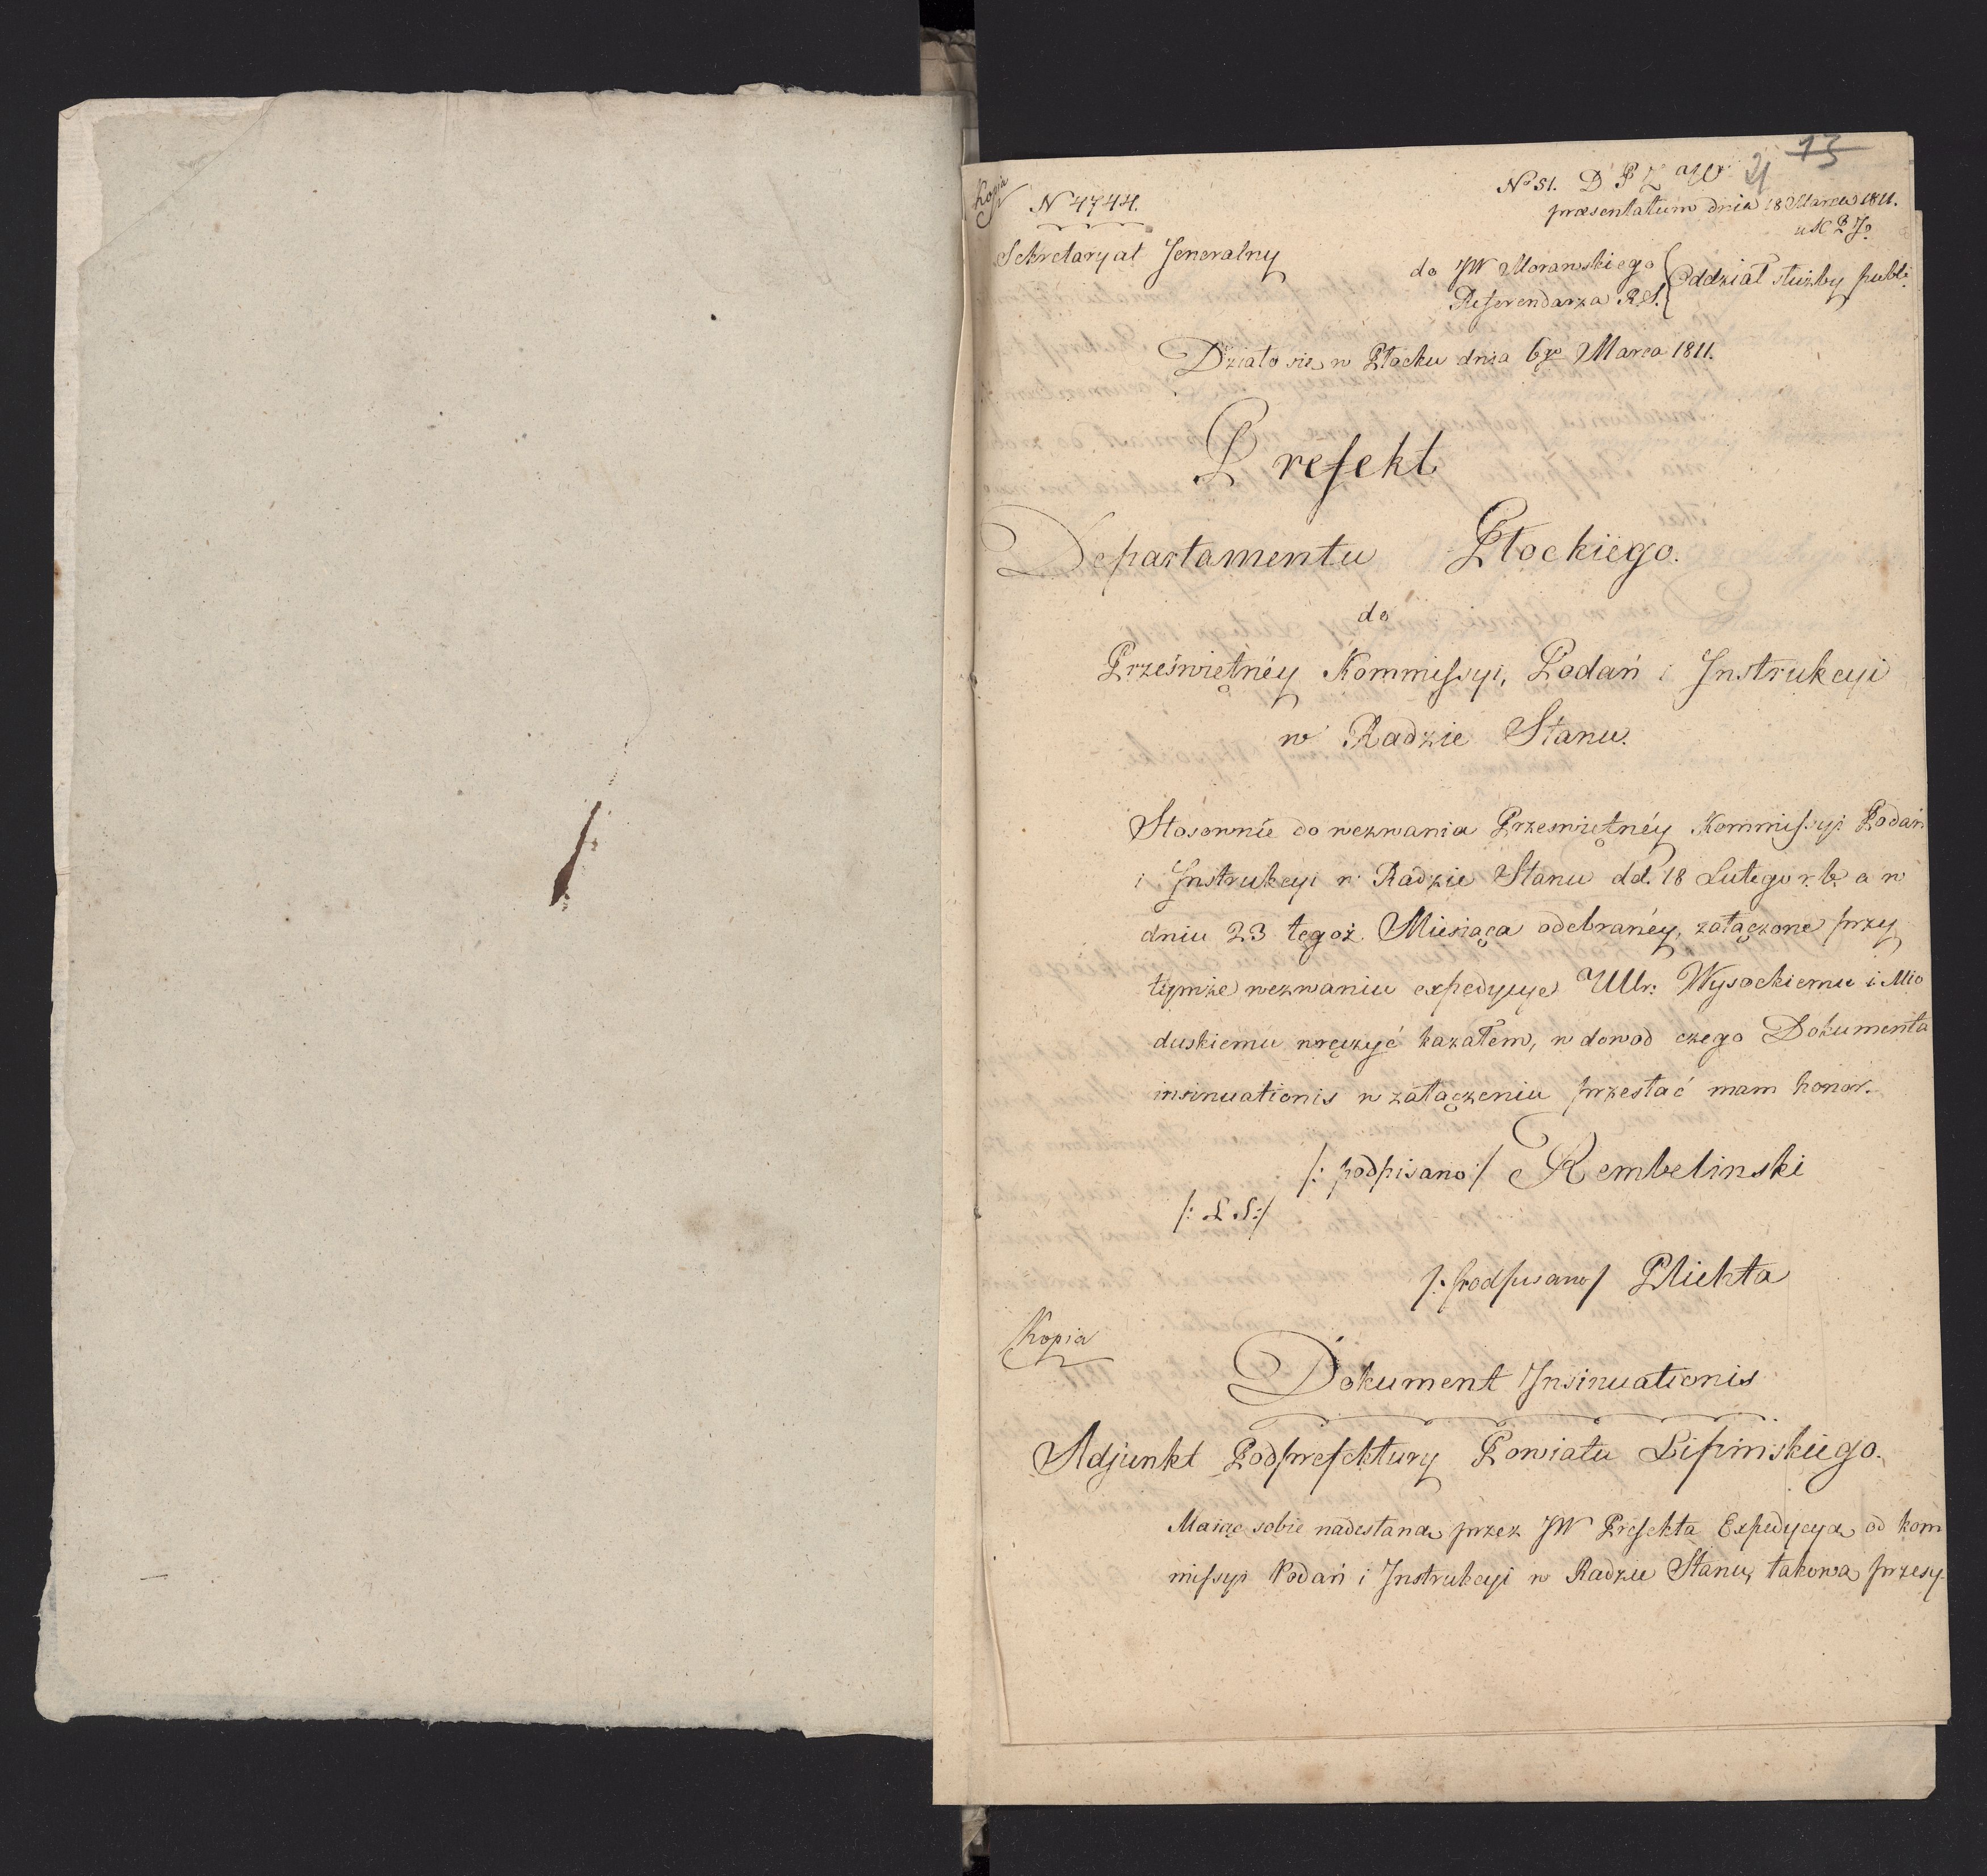 Kopia
N 4744.
No 51. D P Z
21 15
præsentatum dnia 18 Marca 1811.
Sekretaryat Jeneralny
do JW Morawskiego Referendarza R.S.
Oddział służby publ:
Działo się w Płocku dnia 6go Marca 1811.
Prefekt
Departamentu Płockiego.
do
Przeświętnéy Kommissyi, Podań i Instrukcyi
w Radzie Stanu.
Stosownie do wezwania Przeświętnéy Kommissyi Podań
i Instrukcyi w Radzie Stanu dd. 18 Lutego r.b. a w
dniu 23 tegoż Miesiąca odebranéy, załączone przy
tymże wezwaniu expedycye Wysockiemu i Mio
duskiemu wręczyć kazałem, w dowod czego Dokumenta
insinuationis w załączeniu przesłać mam honor.
/: podpisano :/ Rembelinski
/: L.S :/
/: podpisano / Plichta
Kopia
Dokument Insinuationis
Adjunkt Podprefektury Powiatu Lipinskiego.
Maiąc sobie nadesłaną przez JW Prefekta Expedycyą od kom
missyi Podań i Instrukcyi w Radzie Stanu, takową przesy-